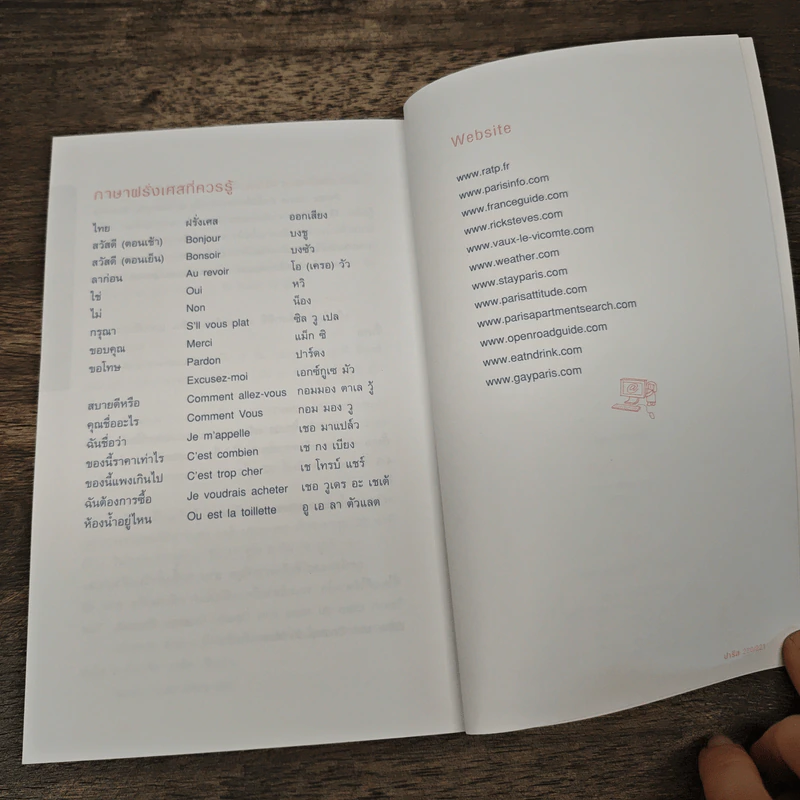 ภาษาฝรั่งเศสที่ควรรู้
ไทย ฝรั่งเศส ออกเสียง
สวัสดี (ตอนเช้า) Bonjour บงชู
สวัสดี (ตอนเย็น) Bonsoir บงซัว
ลาก่อน Au revoir โอ (เครอ) วัว
ใช่ Oui หวิ
ไม่ Non น็อง
กรุณา S'll vous plat ซิล วู เปล
ขอบคุณ Merci แม็ก ซิ
ขอโทษ Pardon ปาร์ดง
Excusez-moi เอกซ์กูเซ มัว
สบายดีหรือ Comment allez-vous กอมมอง ตาเล วู้
คุณชื่ออะไร Comment Vous กอม มอง วู
ฉันชื่อว่า Je m'appelle เชอ มาแปล์ว
ของนี้ราคาเท่าไร C'est combien เซ กง เบียง
ของนี้แพงเกินไป C'est trop cher เซ โทรบ์ แชร์
ฉันต้องการซื้อ Je voudrais acheter เชอ วูเดร อะ เชเต้
ห้องน้ำอยู่ไหน Ou est la toillette อู เอ ลา ตัวแลต
Website
www.ratp.fr
www.parisinfo.com
www.franceguide.com
www.ricksteves.com
www.vaux-le-vicomte.com
www.weather.com
www.stayparis.com
www.parisattitude.com
www.parisapartmentsearch.com
www.openroadguide.com
www.eatndrink.com
www.gayparis.com
ปารีส